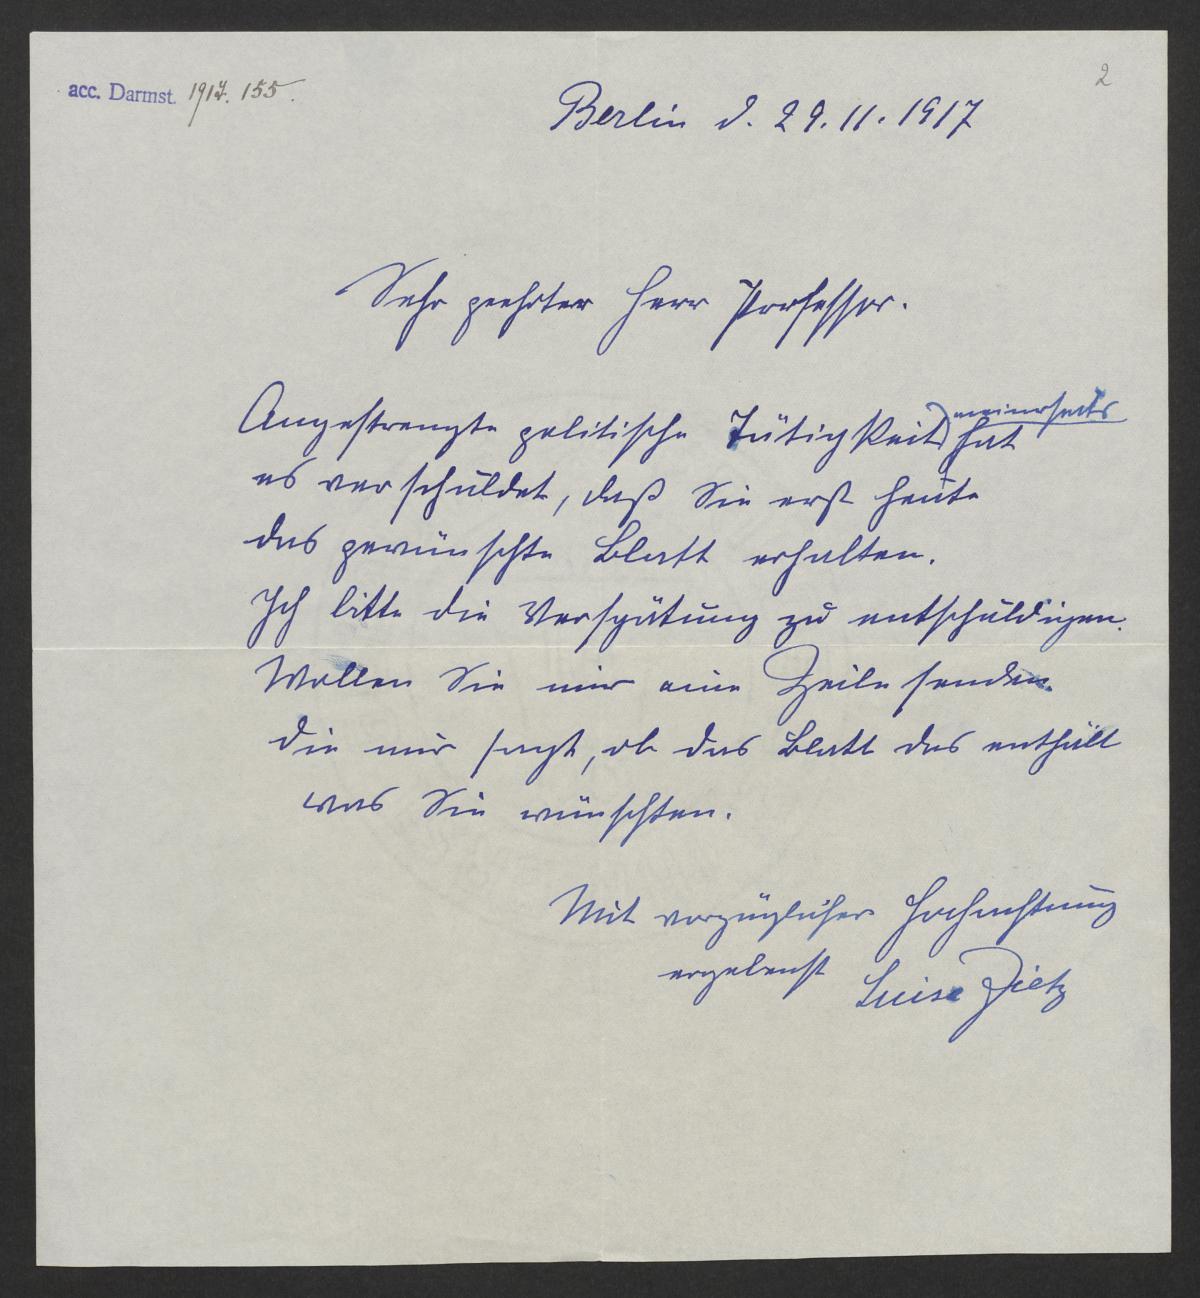 acc. Darmst. 1917. 155.
2
Berlin d. 29. 11. 1917
Sehr geehrter Herr Professor.
meinerseits
Angestrengte politische Tätigkeit hat
es verschuldet, daß Sie erst heute
das gewünschte Blatt erhalten.
Ich bitte die Verspätung zu entschuldigen.
Wollen Sie mir eine Zeile senden
die mir sagt, ob das Blatt das enthält
was Sie wünschten.
Mit vorzüglicher Hochachtung
ergebenst Luise Zietz